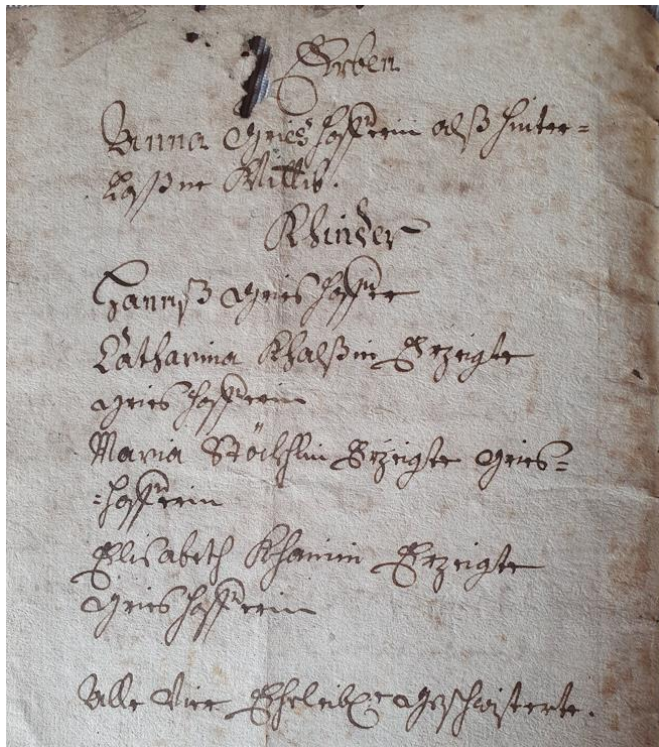 Erben
Anna Grieshofferin alß hinter=
laßne Wittib.
Khinder
Hannß Grieshoffer
Catharina Khalßin Erzeigte
Grieshofferin
Maria Stöckhlin Erzeigte Gries=
=hofferin
Elisabeth Khamin Erzeigte
Grieshofferin
Alle Vier Eheleibl: Geschwisterte.